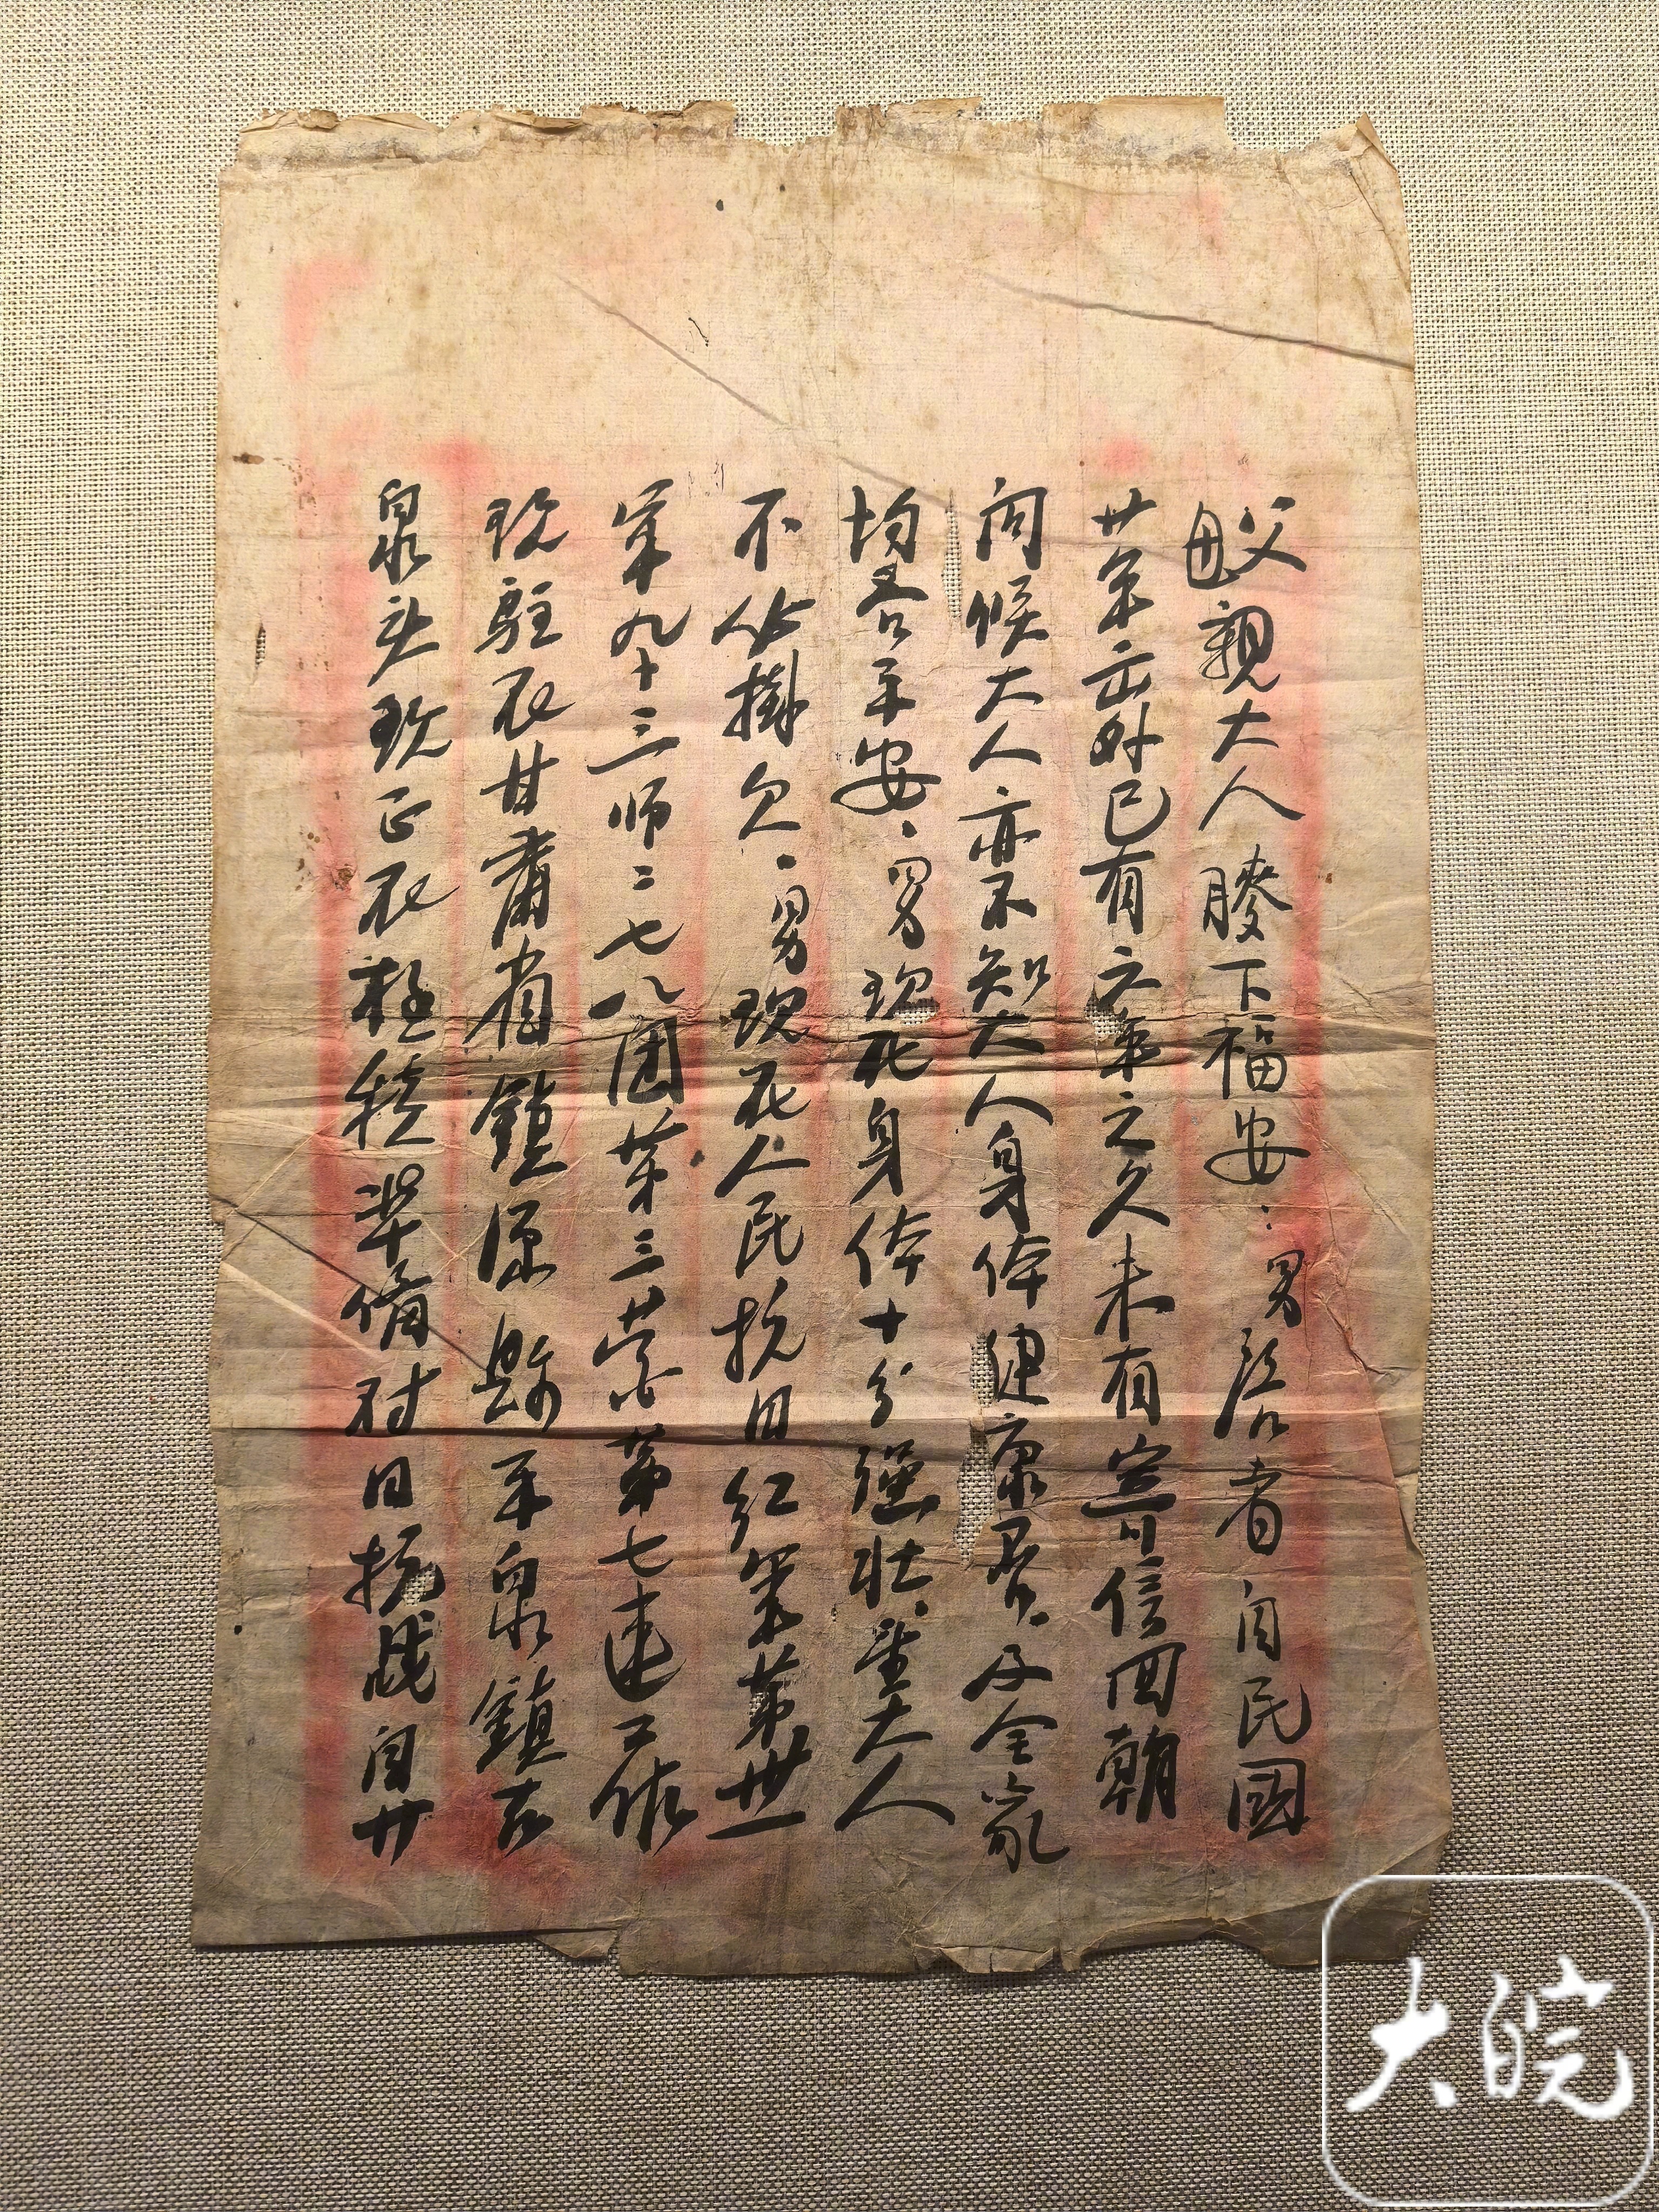 父母親大人 膝下福安：男治者自民國
廿年出外已有六年之久未有寄信回朝
问候大人亦不知大人身体健康否及全家
均各平安．男现在身体十分强壮望大人
不必掛欠．男现在人民抗日红军第卅一
军九十三师二七八团第三营第七连工作
现駐在甘肅省鎮原縣平泉鎮古
泉头现正在積準備对日抗战自廿
大皖